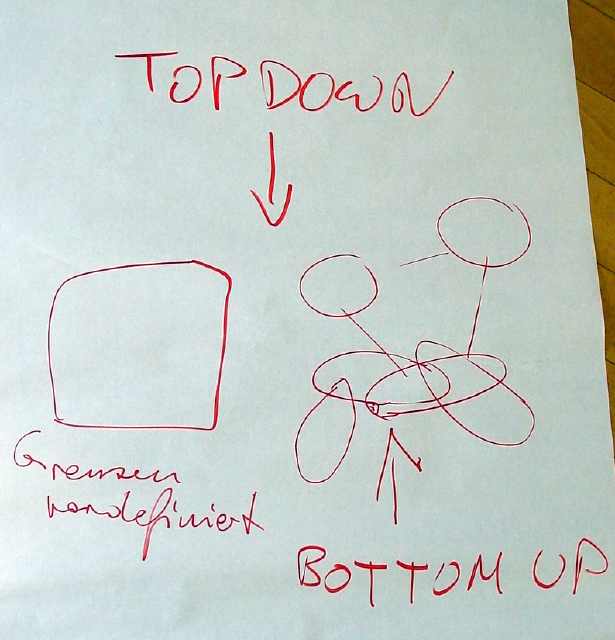 TOPDOWN
Grenzen
vordefiniert
BOTTOM UP